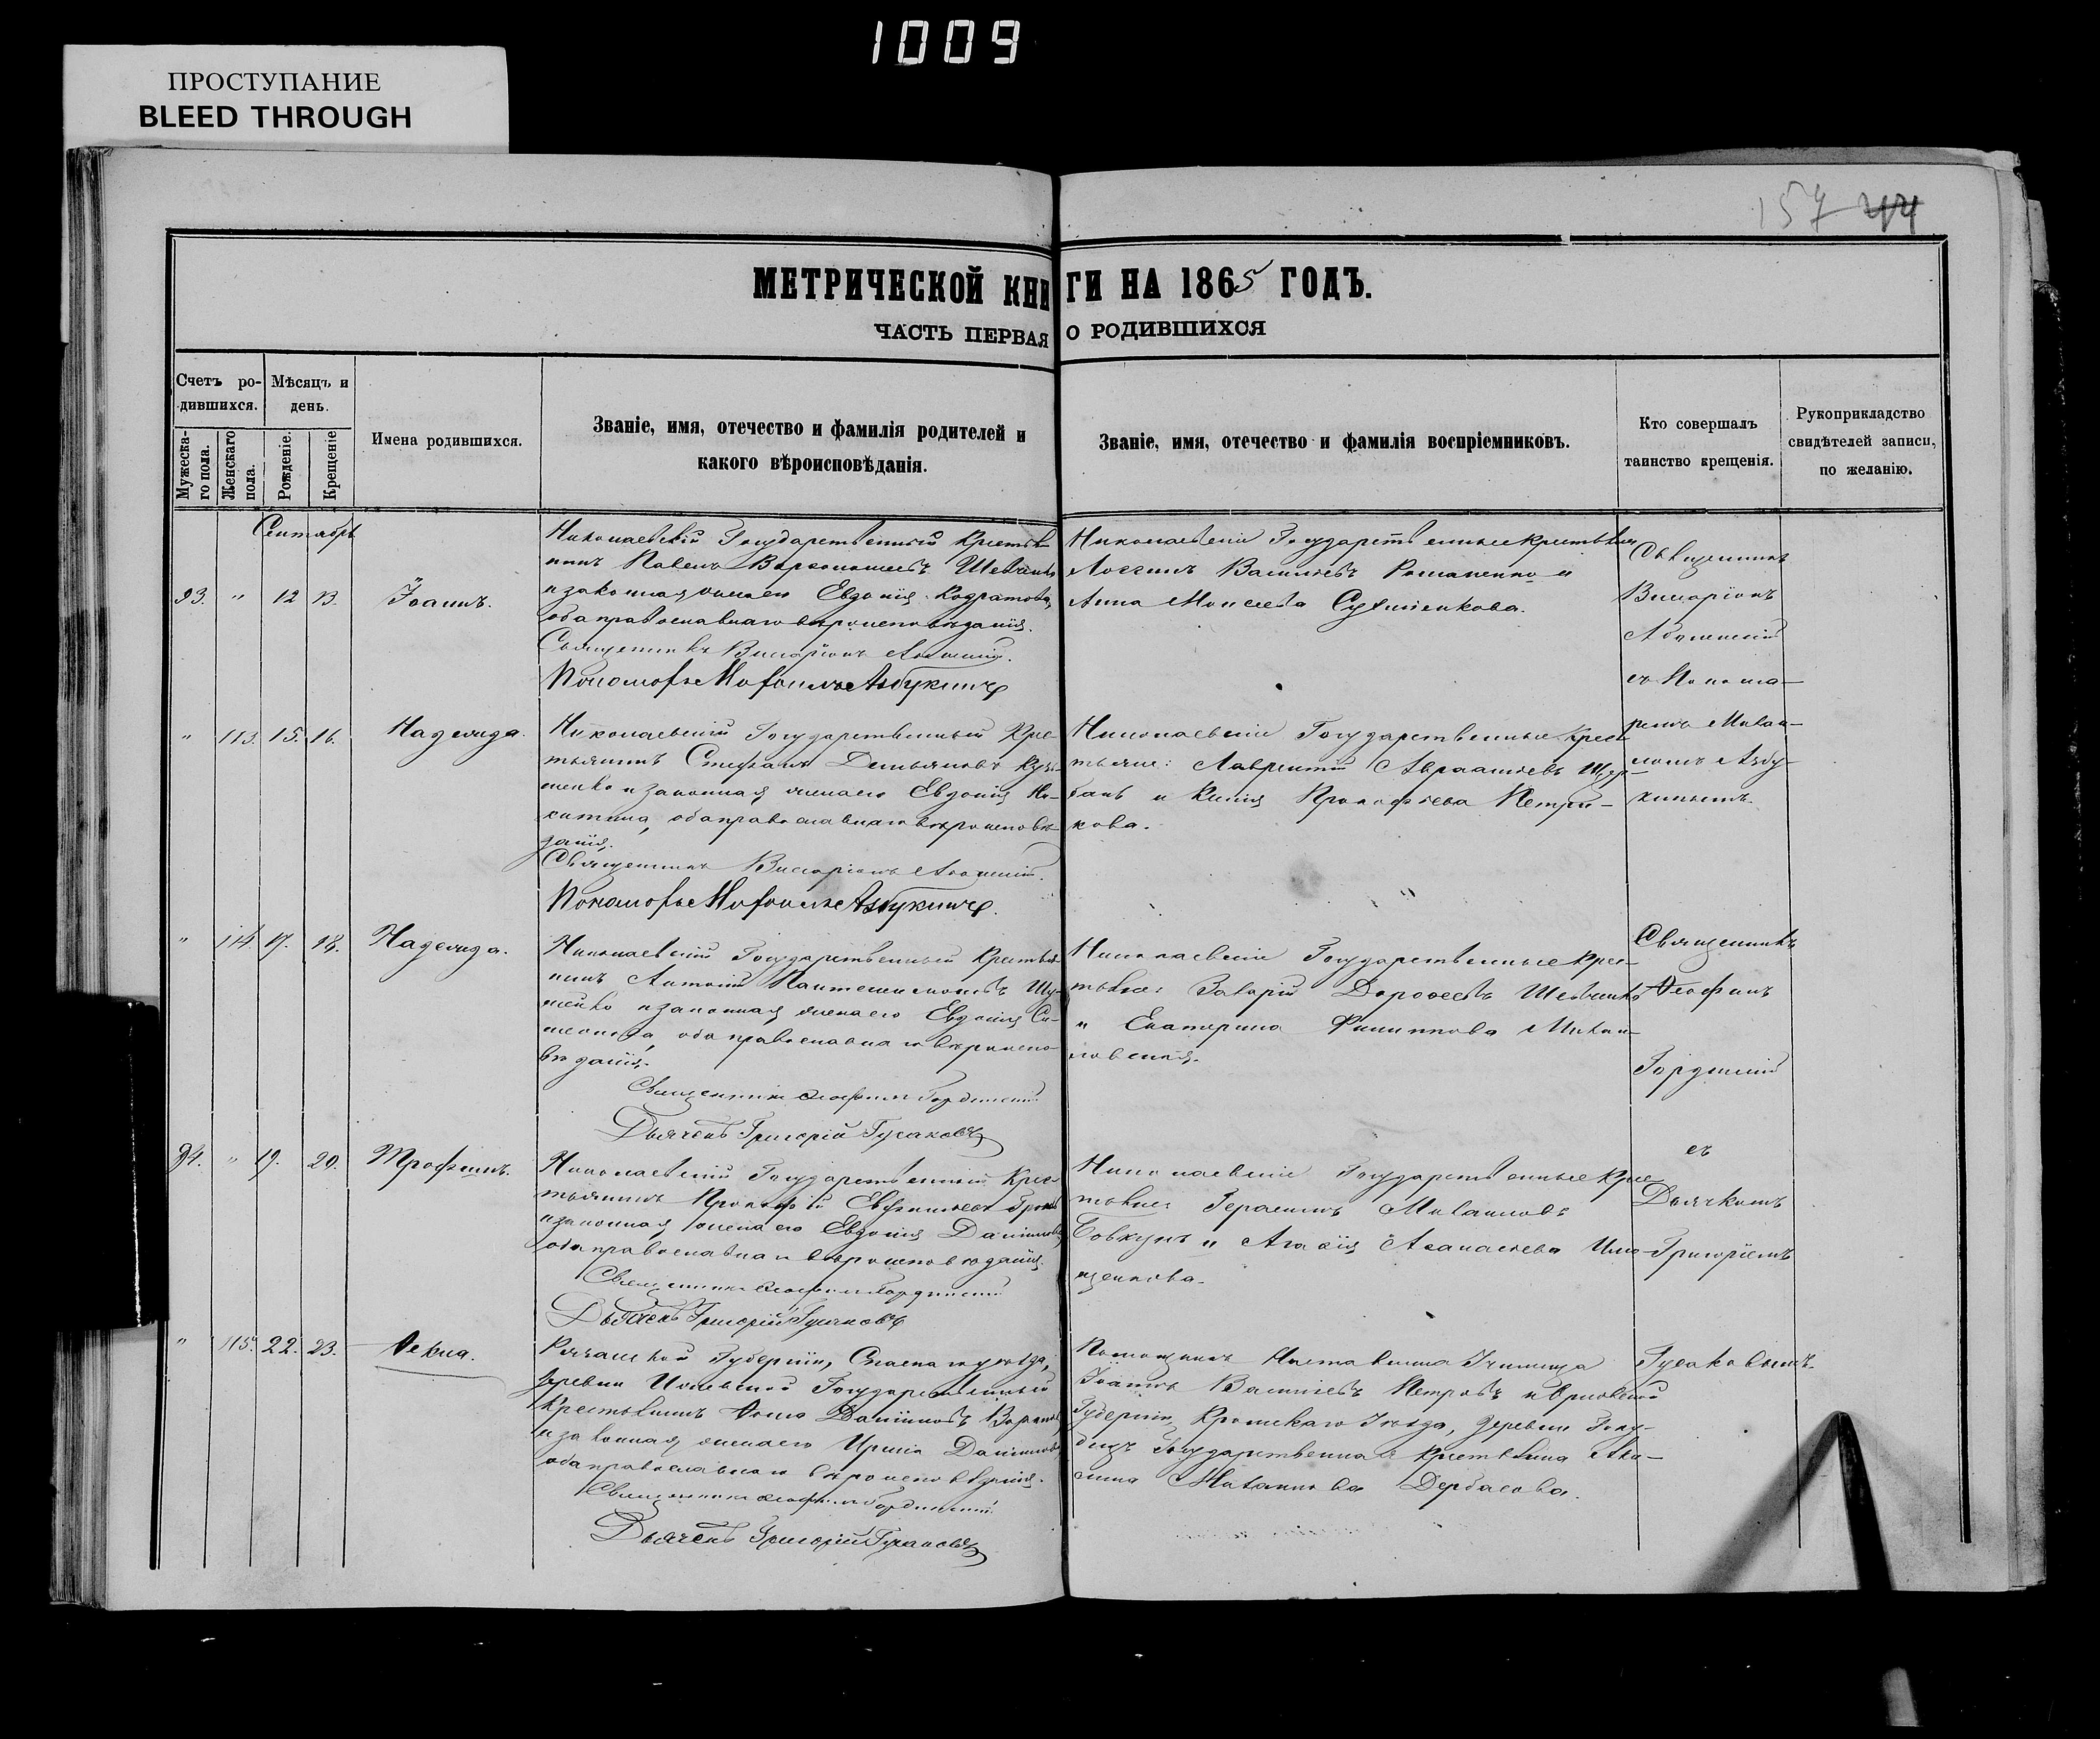 1009
ПРОСТУПАНИЕ
BLEED THROUGH
157 44
МЕТРИЧЕСКОЙ КНИГИ НА 1865 ГОДЪ.
ЧАСТЬ ПЕРВАЯ О РОДИВШИХСЯ
Счетъ ро-
дившихся.
Мужеска-
го пола.
Женскаго
пола.
Мѣсяцъ и
день.
Рожденіе.
Крещеніе
Имена родившихся.
Званіе, имя, отечество и фамилія родителей и
какого вѣроисповѣданія.
Званіе, имя, отечество и фамилія воспріемниковъ.
Кто совершалъ
таинство крещенія.
Рукоприкладство
свидѣтелей записи,
по желанію.
Сентябрь
93. " 12 13. Іоаннъ.
Николаевскій Государственный Крестья-
нинъ Павелъ Шевченко
и законная жена его Евдокія
оба православнаго вѣроисповѣданія.
Священникъ Висаріонъ
Пономарь Азбукинъ
Николаевскіе Государственные крестьяне
Логгинъ Васильевъ Романенко и
Анна Моисеева
Священникъ
Висаріонъ
съ Понома-
ремъ Михаи-
ломъ Азбу-
кинымъ.
" 113. 15. 16. Надежда.
Николаевскій Государственный Кре-
стьянинъ Стефанъ Демьяновъ Кузь-
менко и законная жена его Евдокія Ни-
китина, оба православнаго вѣроисповѣ-
данія.
Священникъ Висаріонъ
Пономарь Азбукинъ.
Николаевскіе Государственные Крес-
тьяне: Лаврентій Авраамьевъ Щер-
бань и Прокофьева Петри-
кова.
" 114. 17. 18. Надежда.
Николаевскій Государственный Крестья-
нинъ Антоній Пантелеимоновъ
и законная жена его Евдокія Си-
меонова, оба православнаго вѣроиспо-
вѣданія.
Священникъ Ѳеофилъ Гординскій
Дьячекъ Григорій Гусаковъ
Николаевскіе Государственные Крес-
тьяне: Захарій Дороѳеевъ Шевченко
и Екатерина Филиппова Михаи-
ловская.
Священникъ
Гординскій
съ
Дьячкомъ
Григоріемъ
Гусаковымъ.
94. " 19. 20. Трофимъ.
Николаевскій Государственный Крес-
тьянинъ Прокофій
и законная жена его Евдокія Даніилова
оба православнаго вѣроисповѣданія.
Священникъ Ѳеофилъ Гординскій
Дьячекъ Григорій Гусаковъ
Николаевскіе Государственные Крес-
тьяне: Герасимъ Михаиловъ
Бовкунъ и Агафія Аѳанасьева
щенкова.
" 115. 22. 23. Ѳекла.
Рязанской Губерніи, Спаскаго уѣзда,
деревни Государственный
Крестьянинъ Ѳома Данииловъ
и законная жена его Ирина Даниилова
оба православнаго вѣроисповѣданія.
Священникъ Ѳеофилъ Гординскій
Дьячекъ Григорій Гусаковъ
Помощникъ Наставника Училища
Іоаннъ Васильевъ Петровъ и Орловской
Губерніи, Кромскаго Уѣзда, деревни Голу-
бицъ Государственная Крестьянка Аку-
лина Дербасова.